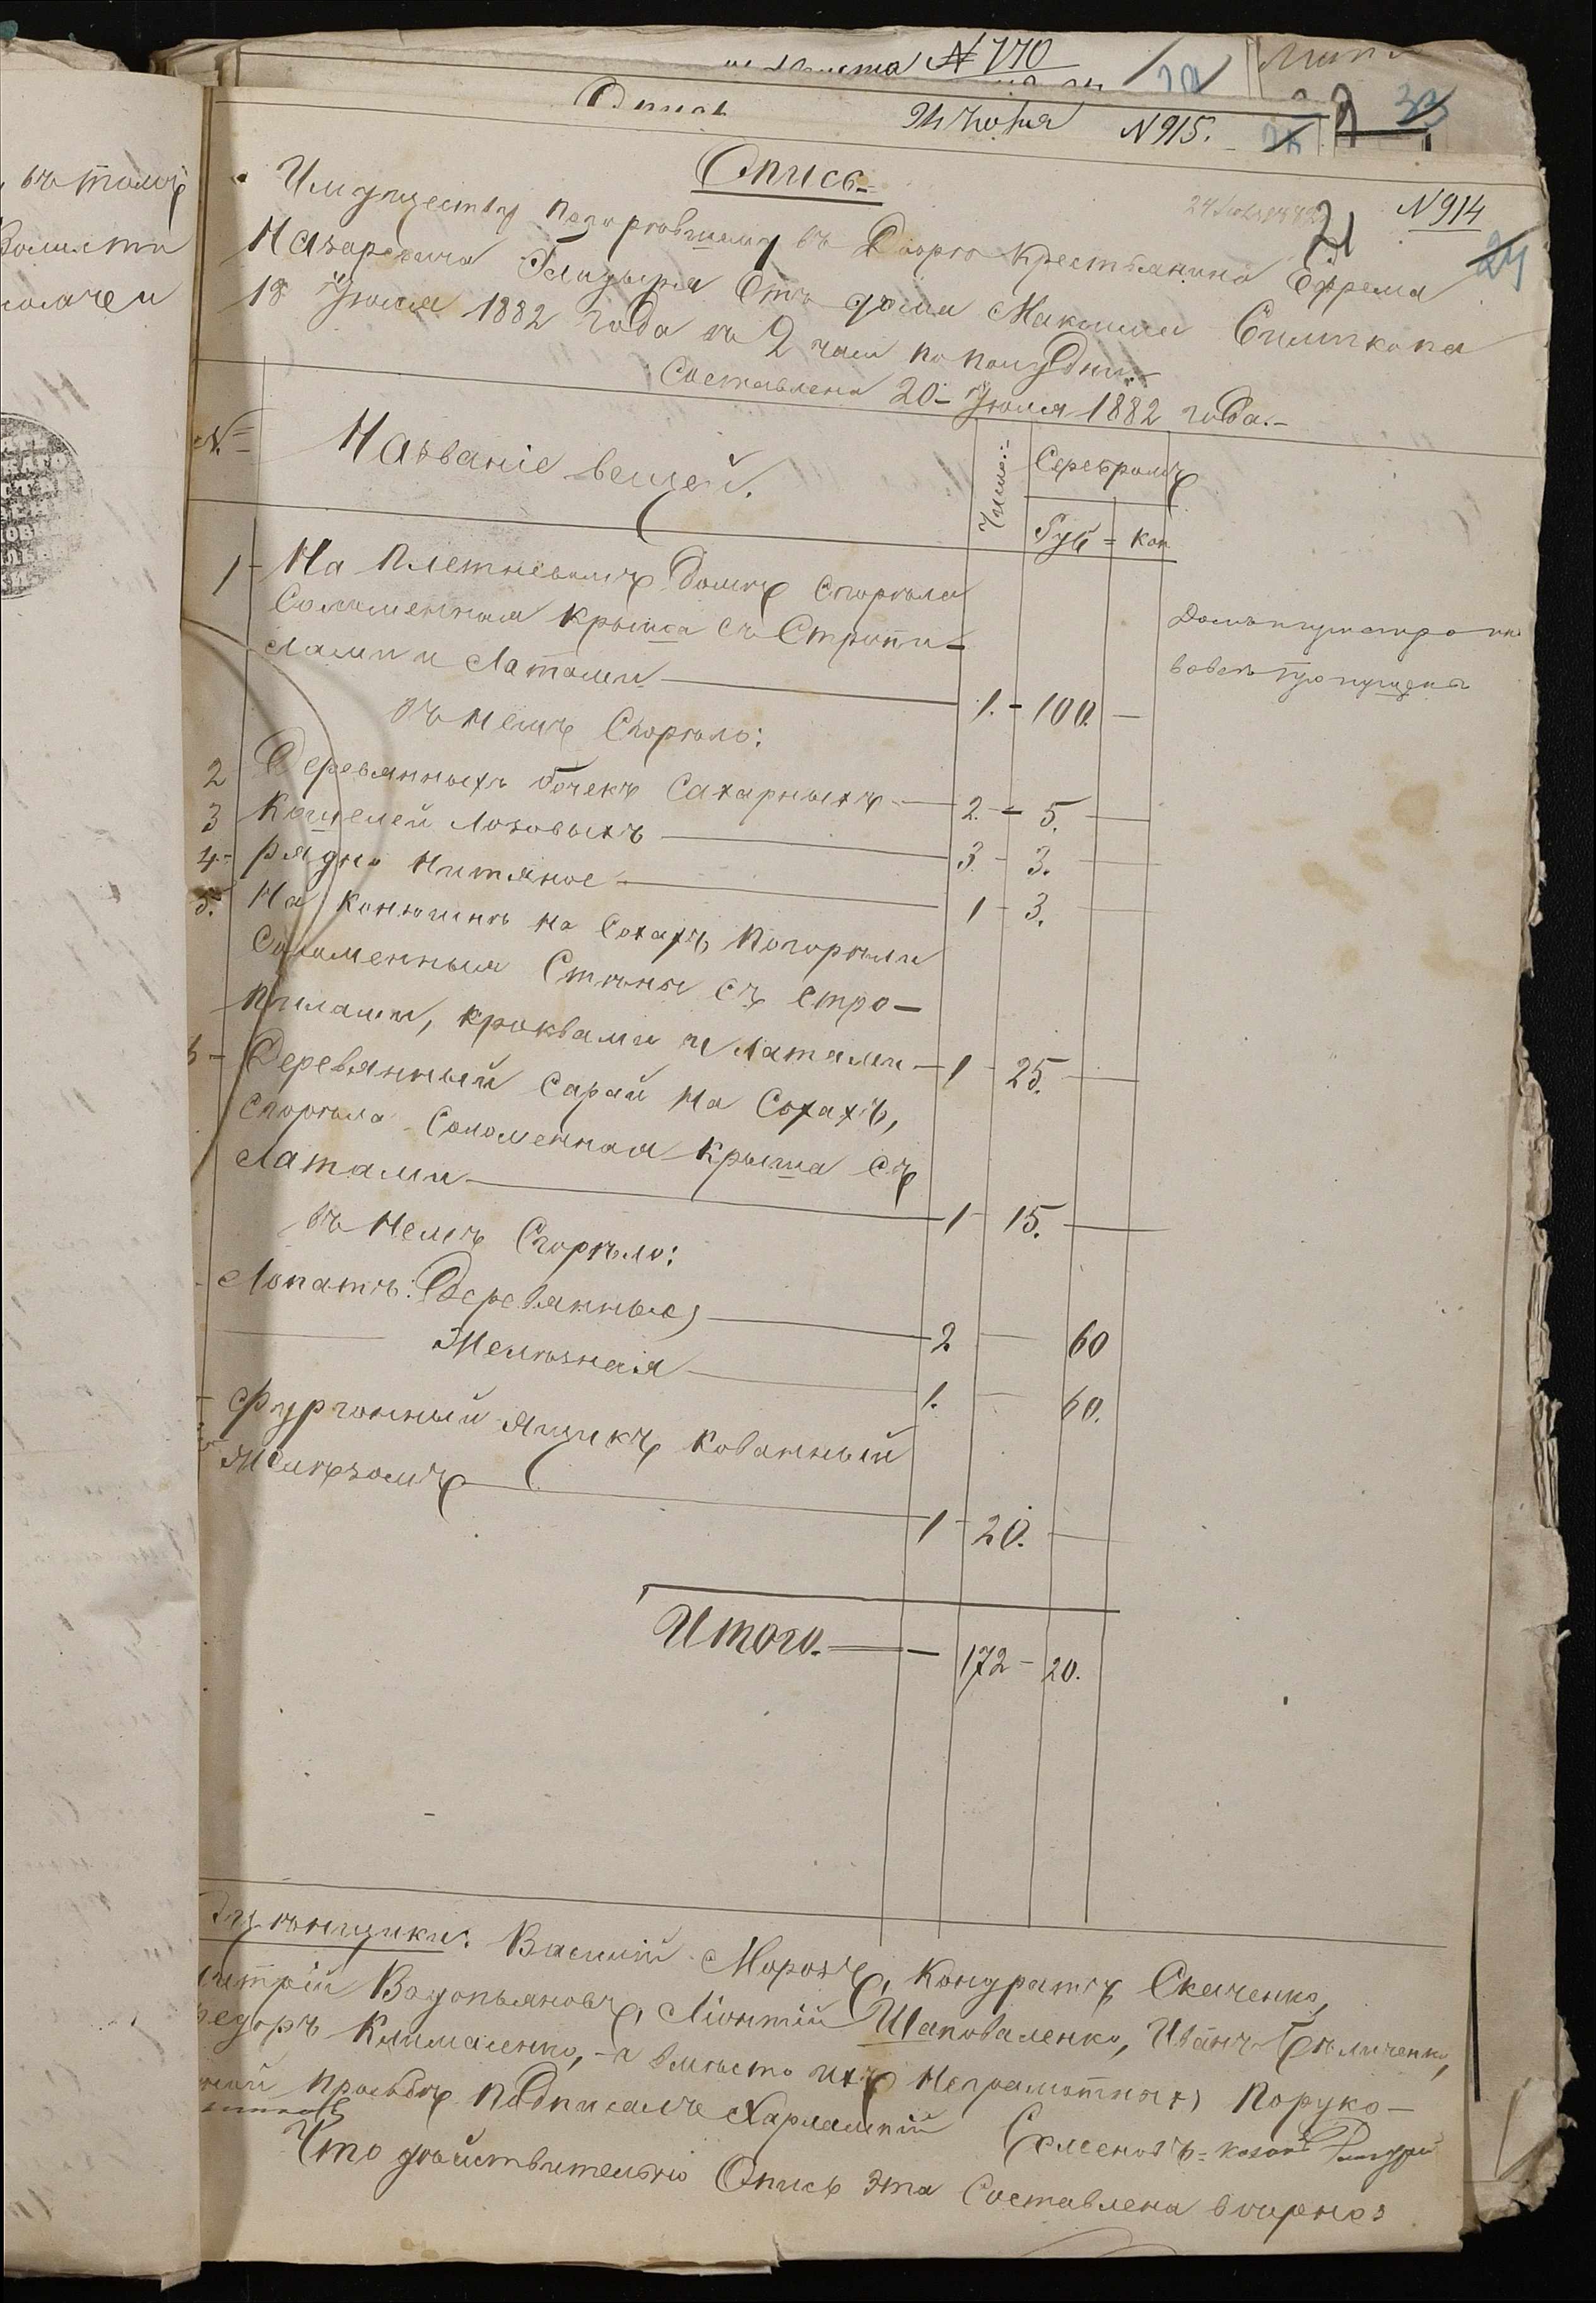 № 770
Опись
Июля № 915.
Опись
№ 914
21
24
Имуществу погоревшему въ Дворѣ крестьянина Ефрема
Назаровича Гницыря Отъ дома Максима
18 Іюля 1882 года въ 2 часа по полудни.
Составлена 20 Іюля 1882 года.
№
Названіе вещей.
Число:
Серебромъ
Руб
Коп
1 На плетневомъ домѣ сгорѣла
Соломенная крыша съ Стропи-
лами и Латами 1. 100.
Въ немъ Сгорѣло:
2 Деревянныхъ бочекъ Сахарныхъ 2. 5.
3 Кошелей Лозовыхъ 3. 3.
4. Рядно Нитяное 1 3.
5. На конюшнѣ на Сохахъ погорѣли
Соломенныя Стѣны съ стро-
пилами, кроквами и латами 1 25.
6 Деревянный Сарай на Сохахъ,
Сгорѣла Соломенная крыша съ
Латами 1 15.
Въ Немъ Сгорѣло:
Лопатъ: Деревянныхъ 2 60
Желѣзная 1. 60.
Фургонный ящикъ кованный
Желѣзомъ 1 20.
Итого. 172 20.
Василій Морозъ, Кондратъ Скаченко,
Водопьяновъ, Ліонтій Шаповаленко, Иванъ Беличенко,
Клименко, а вместо ихъ Неграмотныхъ Поруко-
просьбѣ подписалъ Харлампій
Что дѣйствительно Опись эта Составлена
въ томъ